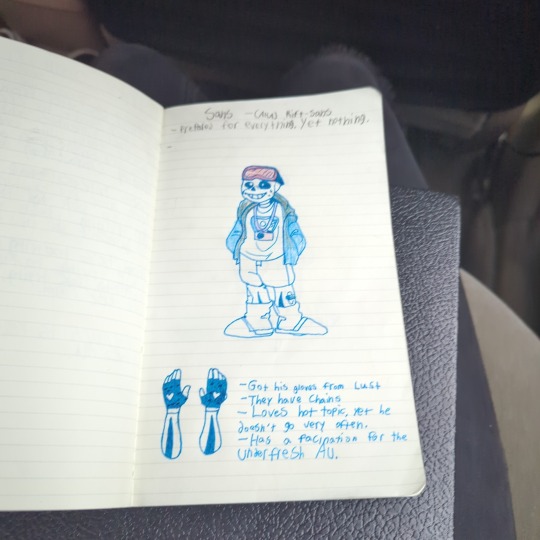 Sans -
- for everything, yet nothing.
-
- Got his gloves from Lust
- They have chains
- Loves hot topic, yet he
doesn't go very often.
- Has a facination for the
Underfresh AU.